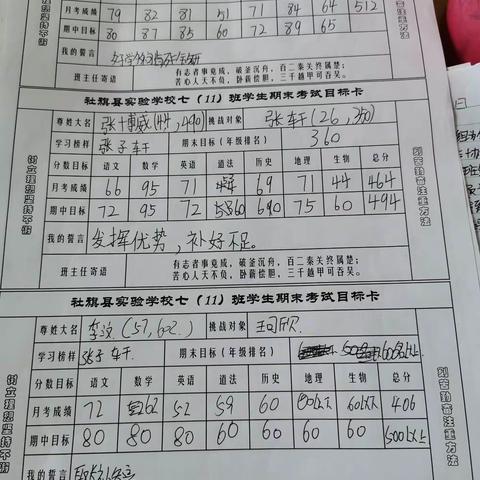 月考成绩 79 82 81 51 71 84 64 512
期中目标 80 87 85 60 72 89 65
我的誓言
班主任寄语 有志者事竟成，破釜沉舟，百二秦关终属楚；
苦心人天不负，卧薪偿胆，三千越甲可吞吴。
刻苦勤奋注重方法
社旗县实验学校七（11）班学生期末考试目标卡
尊姓大名 张博威 490) 挑战对象 张轩(26, 350)
学习榜样 张子轩 期末目标（年级排名） 360
分数目标 语文 数学 英语 道法 历史 地理 生物 总分
月考成绩 66 95 71 69 71 44 464
期中目标 72 95 72 60 75 60 494
我的誓言 发挥优势，补好不足。
班主任寄语 有志者事竟成，破釜沉舟，百二秦关终属楚；
苦心人天不负，卧薪偿胆，三千越甲可吞吴。
树立理想坚持不懈
刻苦勤奋注重方法
社旗县实验学校七（11）班学生期末考试目标卡
尊姓大名 (57, 602) 挑战对象
学习榜样 张子轩 期末目标（年级排名） 600名以上
分数目标 语文 数学 英语 道法 历史 地理 生物 总分
月考成绩 72 62 52 59 60 60以下 60以下 406
期中目标 80 80 80 60 60 60 60 500以上
我的誓言
树立理想坚持不懈
刻苦勤奋注重方法